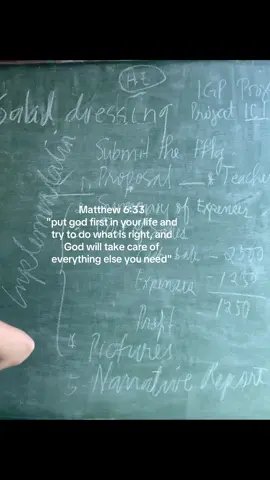 HE
IGP Proje
Salad dressing
Project
Submit the ffg
1. Proposal Teacher
Implementation
Summary of Expenses
Matthew 6:33
"put god first in your life and
try to do what is right, and
God will take care of
everything else you need"
- 2500
Expenses - 1250
1250
Profit
Pictures
5. Narrative Report